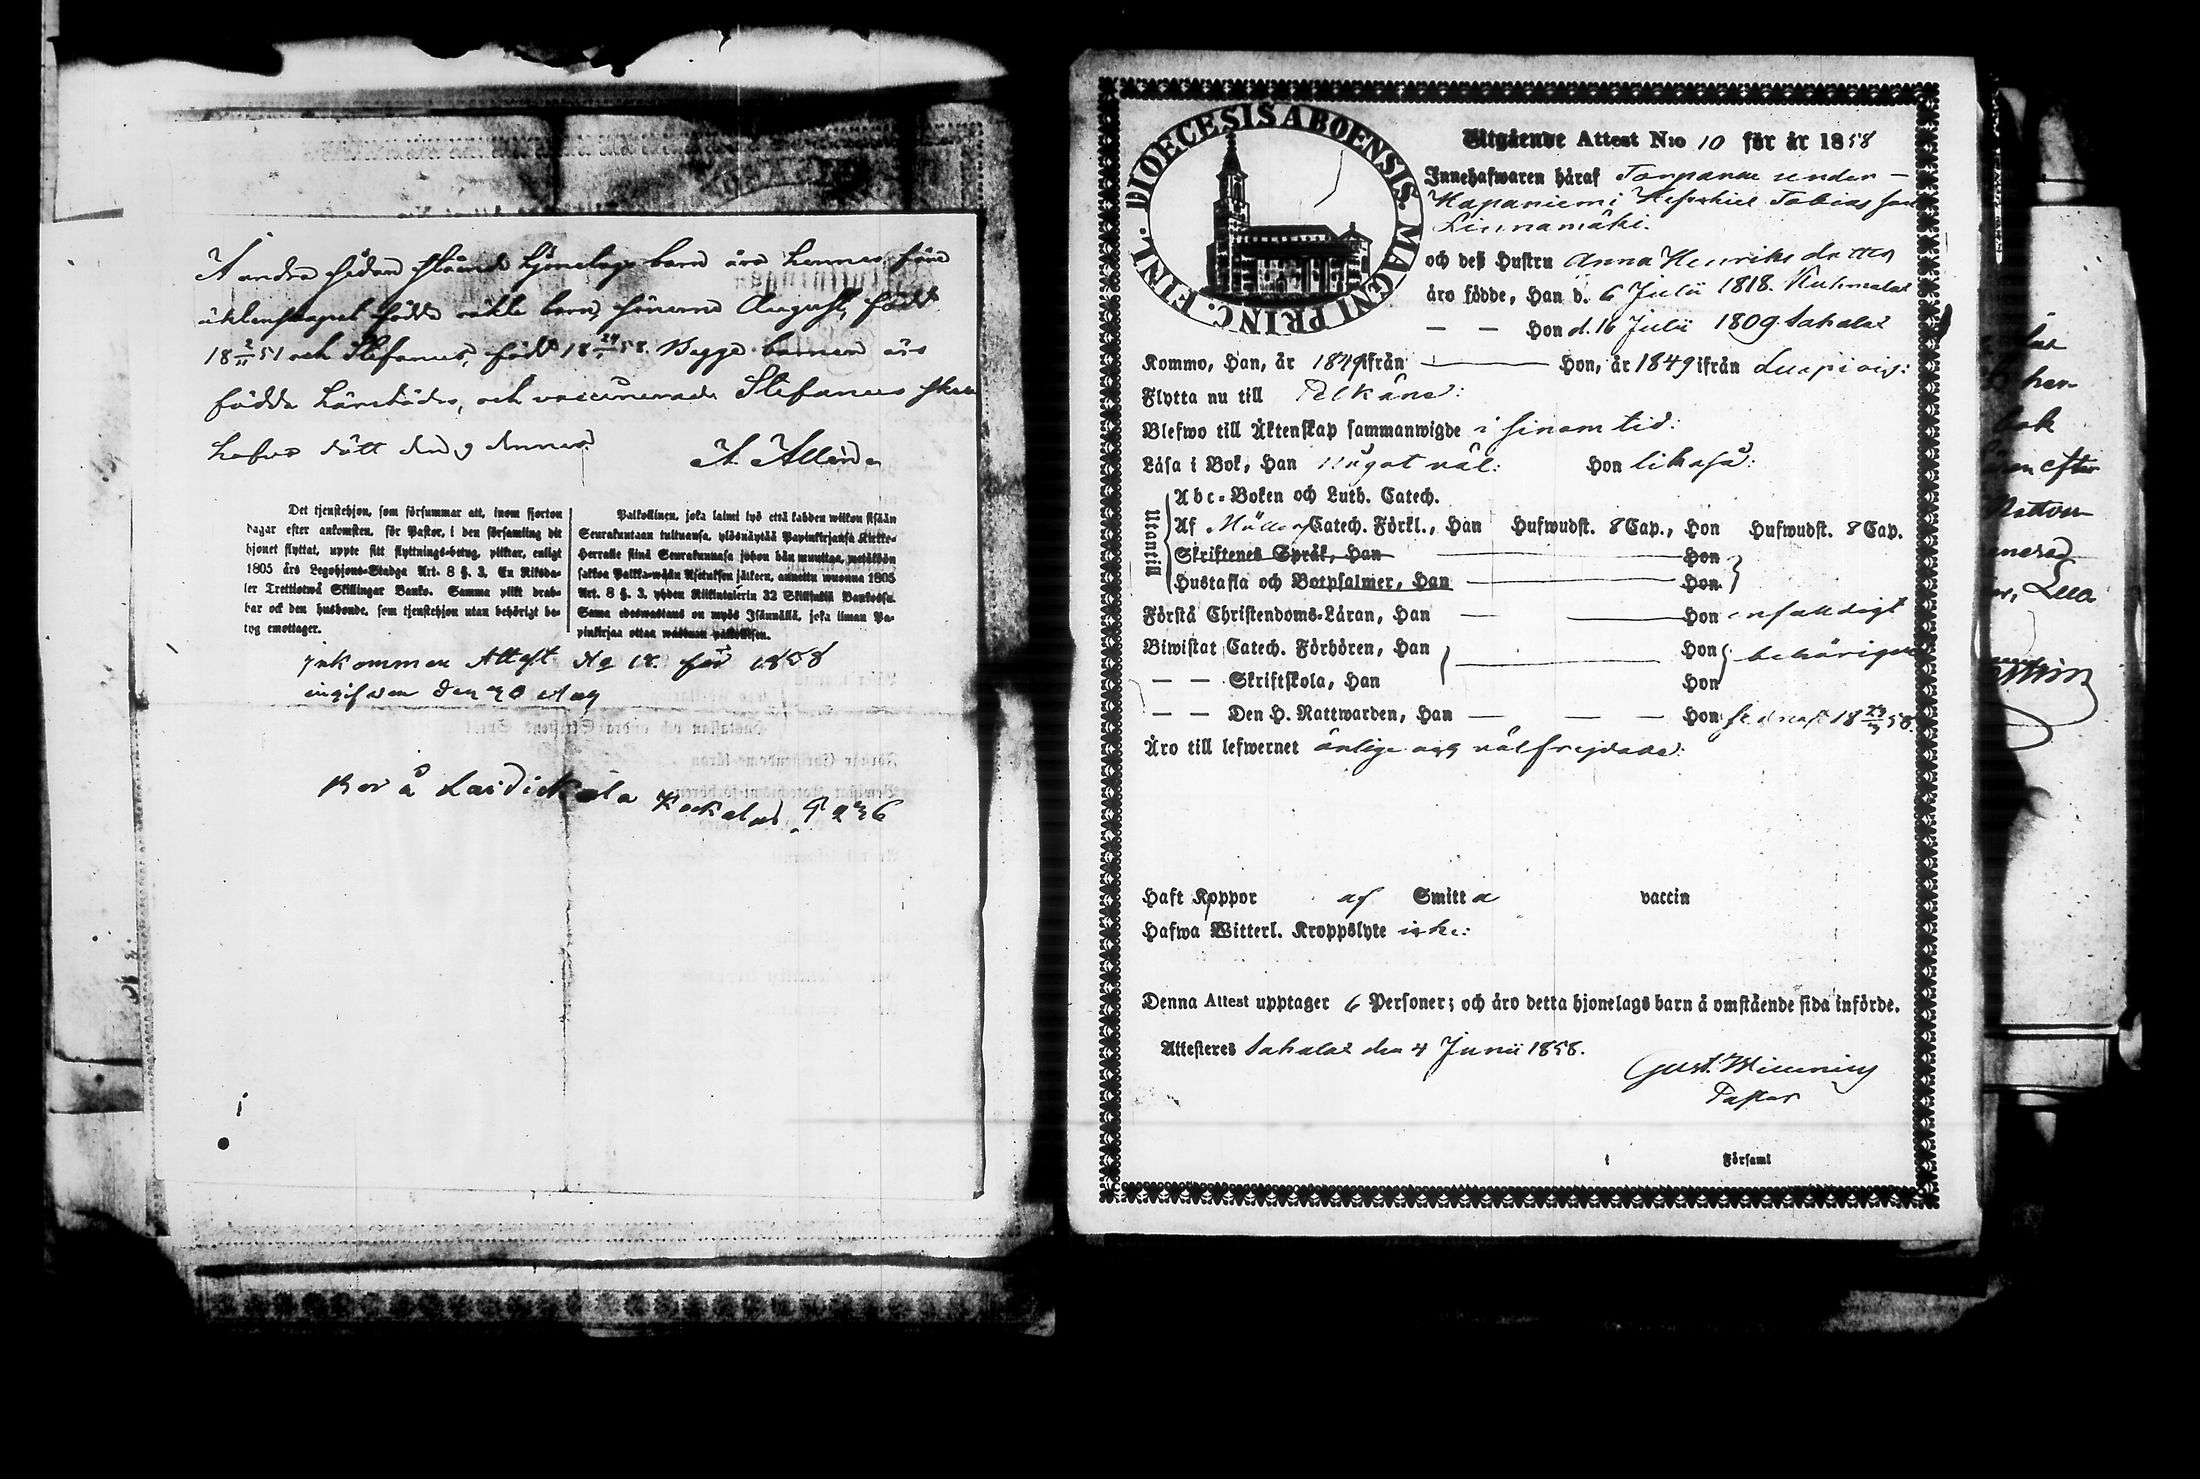 Å andra sidan stående hjonelags barn äro hennes före
äktenskapet födde oäkta barn, sönerne August, född
18 2/11 51 och Stefanus, född 18 58. Begge barnen äro
födda härstädes, och vaccinerade Stefanus skall
hafva dött den 9 dennes.
A. Allén
Det tjenstehjon, som försummar att, inom fjorton
dagar efter ankomsten, för Pastor, i den församling dit
hjonet flyttat, uppte sitt flyttnings-betyg, pliktar, enligt
1805 års Legohjons-Stadga Art. 8 §. 3, En Riksda-
ler Trettiotwå Skillingar Banko. Samma plikt drab-
bar ock den husbonde, som tjenstehjon utan behörigt be-
tyg emottager.
Palkollinen, joka laimi lyö että kahden wiikon sisään
Seurakuntaan tultuansa, ylösnäyttää Papinkirjansa Kirkko-
Herralle siinä Seurakunnasa johon hän muuttaa, wetäköön
sakkoa Palkka-wäen Asetuksen jälkeen, annettu wuonna 1805
Art. 8 §. 3, yhden Riikintalerin 32 Skillinkiä Bankossa.
Sama edeswastaus on myös Isännällä, joka ilman Pa-
pinkirjaa ottaa wastaan palkollisen.
Inkommen Attest No 18 för 1858
ingifven den 20 Aug
Bor å Laidickala Kockala P 236
DIOECESIS ABOENSIS. MAGNI PRINC. FINL.
Utgående Attest N:o 10 för år 1858
Innehafwaren häraf Torparen under
Hapaniemi Hesekiel Tobias son
Linnamäki.
och deß Hustru Anna Henriks dotter
äro födde, Han d. 6 Julii 1818. Kuhmalax
— — Hon d. 16 Julii 1809. Sahalax
Kommo, Han, år 1849 ifrån — Hon, år 1849 ifrån Luopiois:
Flytta nu till Pelkäne:
Blefwo till Äktenskap sammanwigde i sinom tid:
Läsa i Bok, Han något väl: Hon likaså:
Utantill
Abc-Boken och Luth. Catech.
Af Möllers Catech. Förkl., Han Hufwudst. 8 Cap., Hon Hufwudst. 8 Cap.
Skriftenes Språk, Han — Hon
Hustafla och Botpsalmer, Han — Hon
Förstå Christendoms-Läran, Han — Hon enfaldigt
Biwistat Catech. Förhören, Han — Hon behörigen
— — Skriftskola, Han Hon
— — Den H. Nattwarden, Han — — — Hon sednast 18 58.
Äro till lefwernet ärlige och välfrejdade:
Haft Koppor af Smitta vaccin
Hafwa Witterl. Kroppslyte icke:
Denna Attest upptager 6 Personer; och äro detta hjonelags barn å omstående sida införde.
Attesteres Sahalax den 4 Junii 1858.
Gust.
Pastor
i Församl